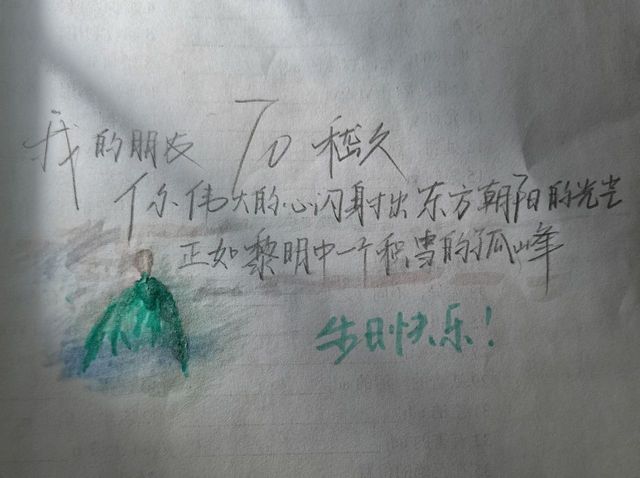 我的朋友 To 嵇久
你伟大的心闪射出东方朝阳的光芒
正如黎明中一个积雪的孤峰
生日快乐！